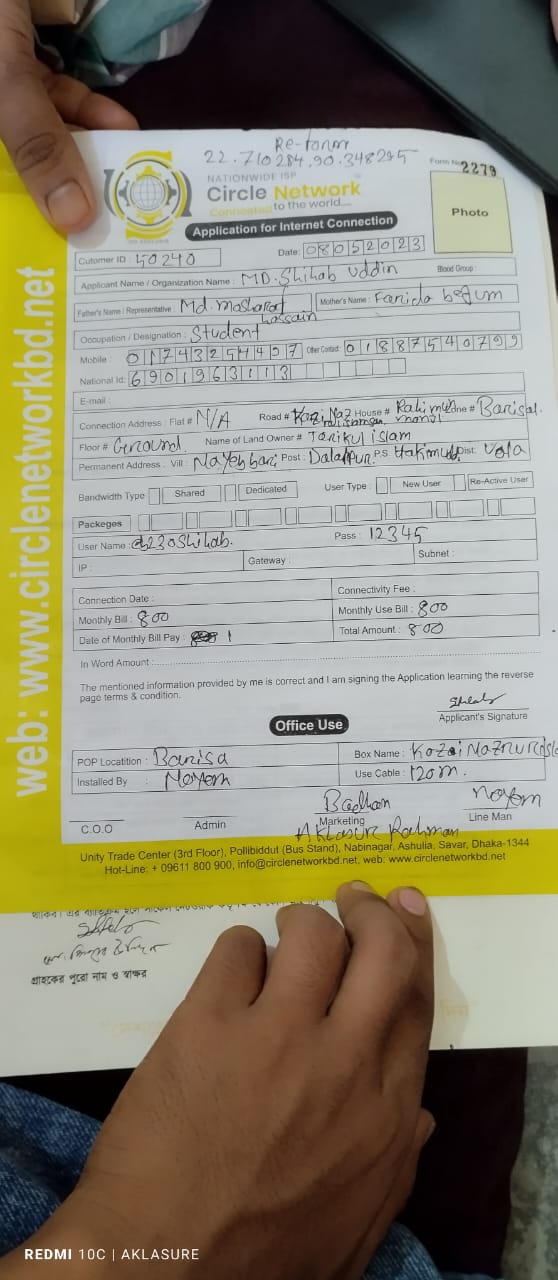 Re-form
22.710284,90.348295
Form No 2279
NATIONWIDE ISP
Circle Network
Connected to the world....
Application for Internet Connection
Photo
Cutomer ID : 50240 Date: 08052023
Applicant Name / Organization Name : MD. Shihab Uddin Blood Group :
Father's Name / Representative : Md. mosharof hossain Mother's Name : Farida begum
Occupation / Designation : Student
Mobile : 01743254497 Other Contact: 01887540799
National Id: 6901963113
E-mail :
Connection Address : Flat # N/A Road # Kazi Naz House # Rahimun Zone # Barisal.
Floor # Ground Name of Land Owner # Tarikul islam
Permanent Address : Vill : Nayeb bari Post : Dalalpur P.S: Hakimuddi Dist: Vola
Bandwidth Type Shared Dedicated User Type : New User Re-Active User
Packeges
User Name : @230Shihab. Pass : 12345
IP : Gateway : Subnet :
Connection Date : Connectivity Fee :
Monthly Bill : 800 Monthly Use Bill : 800
Date of Monthly Bill Pay : 1 Total Amount : 800
In Word Amount
The mentioned information provided by me is correct and I am signing the Application learning the reverse
page terms & condition.
Applicant's Signature
Office Use
POP Locatition : Barisa Box Name : Kozi Naznur
Installed By : Noyom Use Cable : 120m.
Badhan Noyom
C.O.O Admin Marketing Line Man
Aklasur Rahman
Unity Trade Center (3rd Floor), Pollibiddut (Bus Stand), Nabinagar, Ashulia, Savar, Dhaka-1344
Hot-Line: + 09611 800 900, info@circlenetworkbd.net, web: www.circlenetworkbd.net
web: www.circlenetworkbd.net
গ্রাহকের পুরো নাম ও স্বাক্ষর
REDMI 10C | AKLASURE